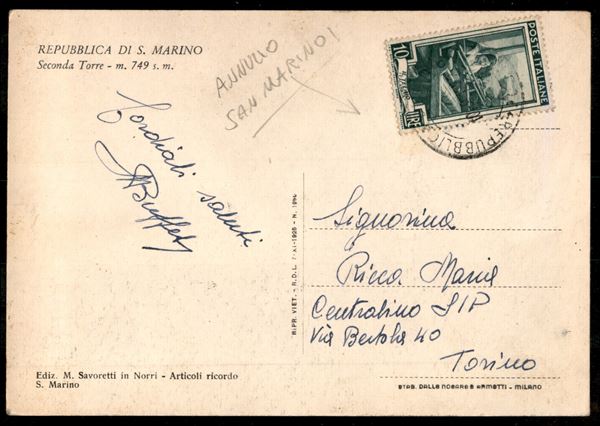 REPUBBLICA DI S. MARINO
Seconda Torre - m. 749 s. m.
ANNULLO
SAN MARINO!
10
LIRE
POSTE ITALIANE
REPUBBLIC
Cordiali saluti
Signorina
Ricca Maria
Centralino SIP
Via Bertola 40
Torino
RIPR. VIET. - R.D.L. 7-XI-1925 - N. 1950
Ediz. M. Savoretti in Norri - Articoli ricordo
S. Marino
STAB. DALLE NOGARE E ARMETTI - MILANO